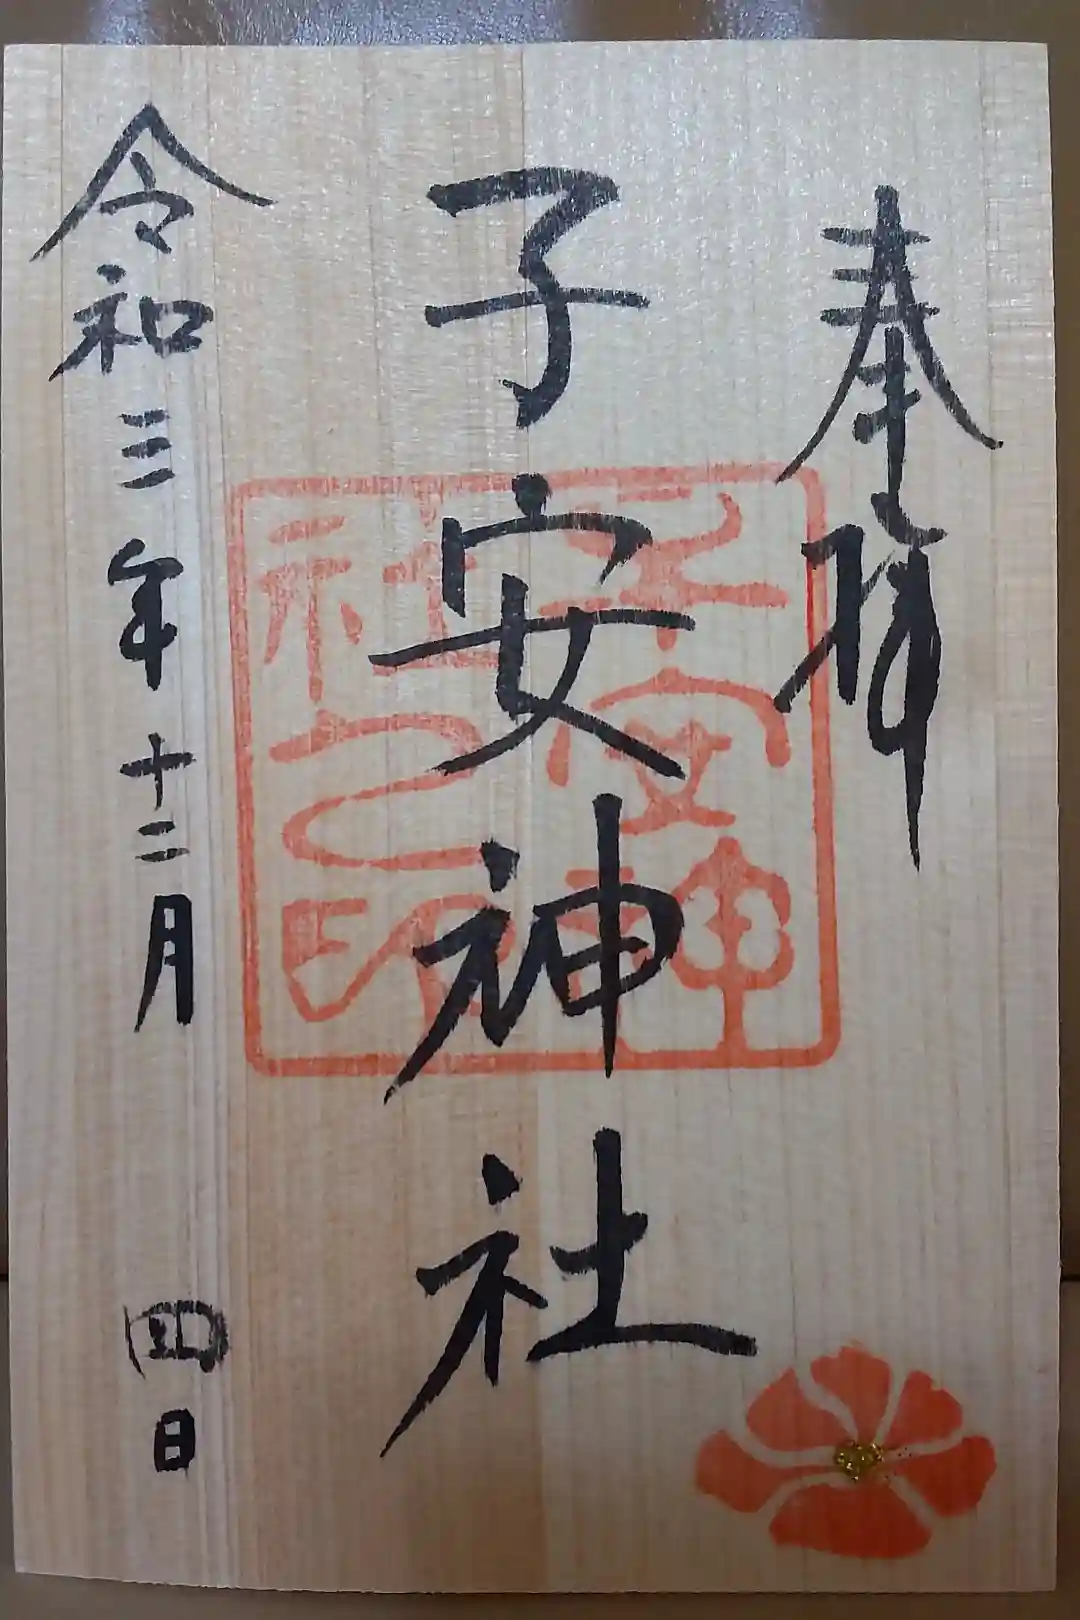 奉拝
子安神社
子安神
社之印
令和三年十二月 四日